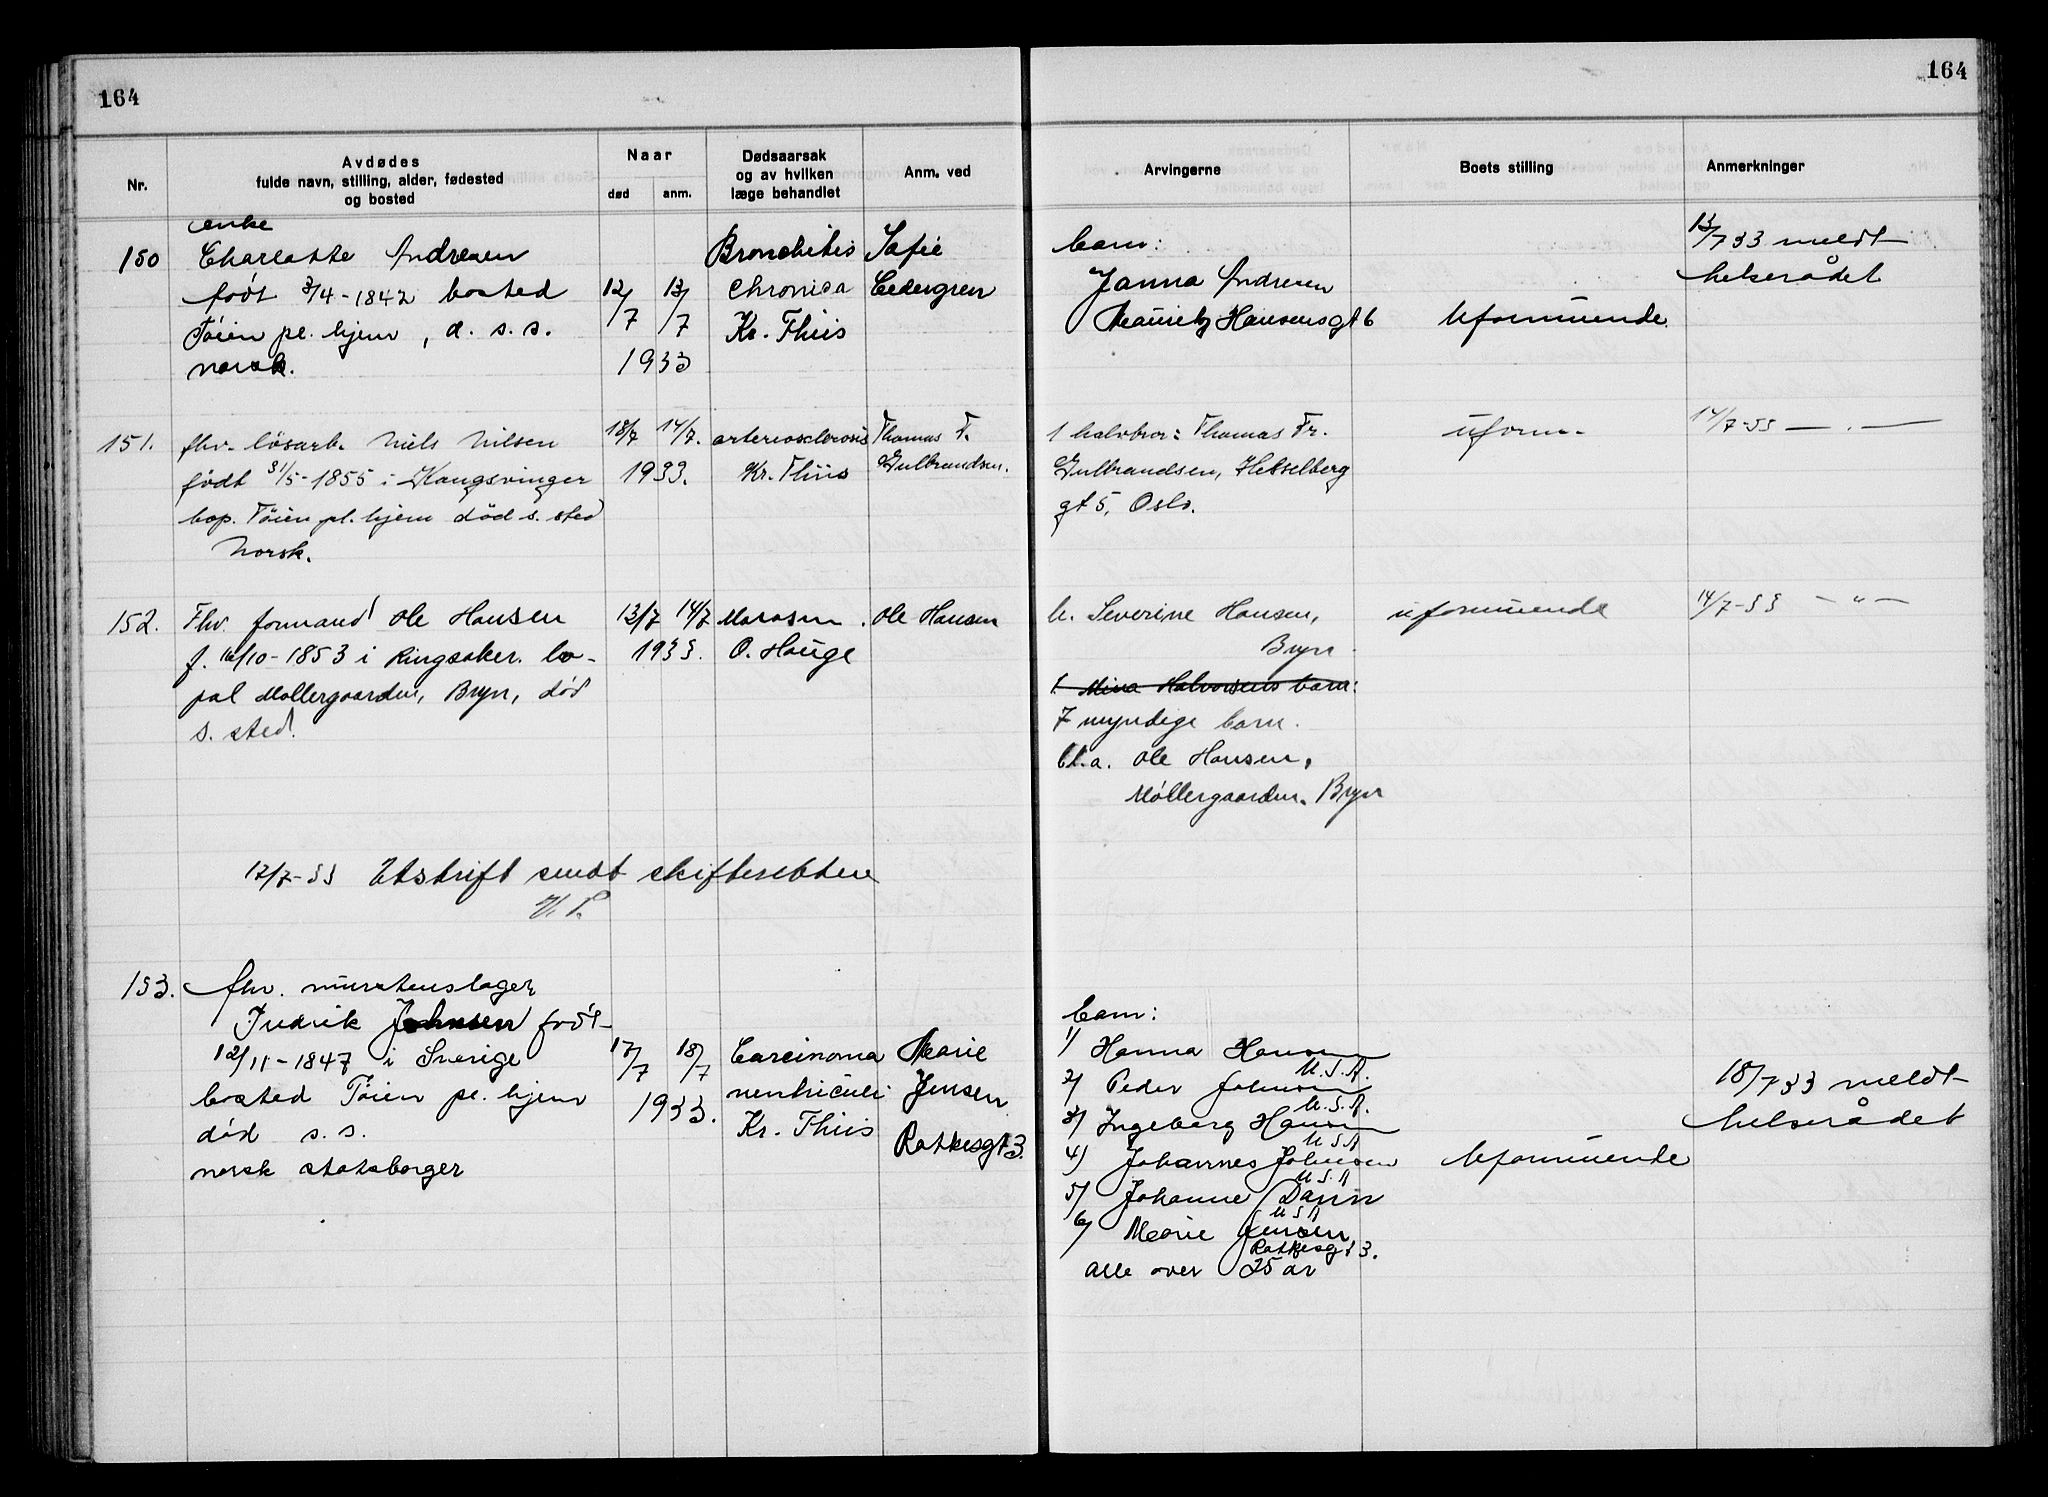 164
164
Nr.
Avdødes
fulde navn, stilling, alder, fødested
og bosted
Naar
død
anm.
Dødsaarsak
og av hvilken
læge behandlet
Anm. ved
Arvingerne
Boets stilling
Anmerkninger
150
enke
Charlotte Andresen
født 3/4-1842 bosted
Tøien pl. hjem, d. s. s.
norsk.
12/7 13/7
1933
Bronchitis
chronica
Kr. Thiis
Sofie
Cedergren
barn:
Janna Andresen
Mauritz Hansensgt 6
Uformuende.
13/7 33 meldt
helserådet
151.
fhv. løsarb. Niels Nilsen
født 31/5-1855 i Kongsvinger
bop. Tøien pl. hjem død s. sted
Norsk.
13/7 14/7.
1933.
arteriosclerosis
Kr. Thiis
Thomas F.
Gulbrandsen.
1 halvbror: Thomas Fr.
Gulbrandsen, Hesselberg
gt 5, Oslo.
uform.
14/7-33 — . —
152.
Fhv. formand Ole Hansen
f. 16/10-1853 i Ringsaker. bo-
pal Møllergaarden, Bryn, død
s. sted.
13/7 14/7
1933.
Marasm.
O. Hauge
Ole Hansen
h. Severine Hansen,
Bryn
1. Mina Halvorsens barn:
7 myndige barn.
bl.a. Ole Hansen,
Møllergaarden. Bryn
uformuende
14/7-33 — " —
17/7-33 Utskrift sendt skifteretten
153.
fhv. murstenslager
Fredrik Johnsen født
12/11-1847 i Sverige
bosted Tøien pl. hjem
død s. s.
norsk statsborger
17/7 18/7
1933.
Carcinoma
ventriculi
Kr. Thiis
Marie
Jensen
Ratkesgt 3.
barn:
1/ Hanna Hansen
U.S.A.
2/ Peder Johnsen
U.S.A.
3/ Ingeborg Hansen
U S A
4/ Johannes Johnsen
U.S.A
5/ Johanne Dann
U S A
6/ Marie Jensen
Ratkesgt 3.
alle over 25 år
Uformuende
18/7 33 meldt
helserådet